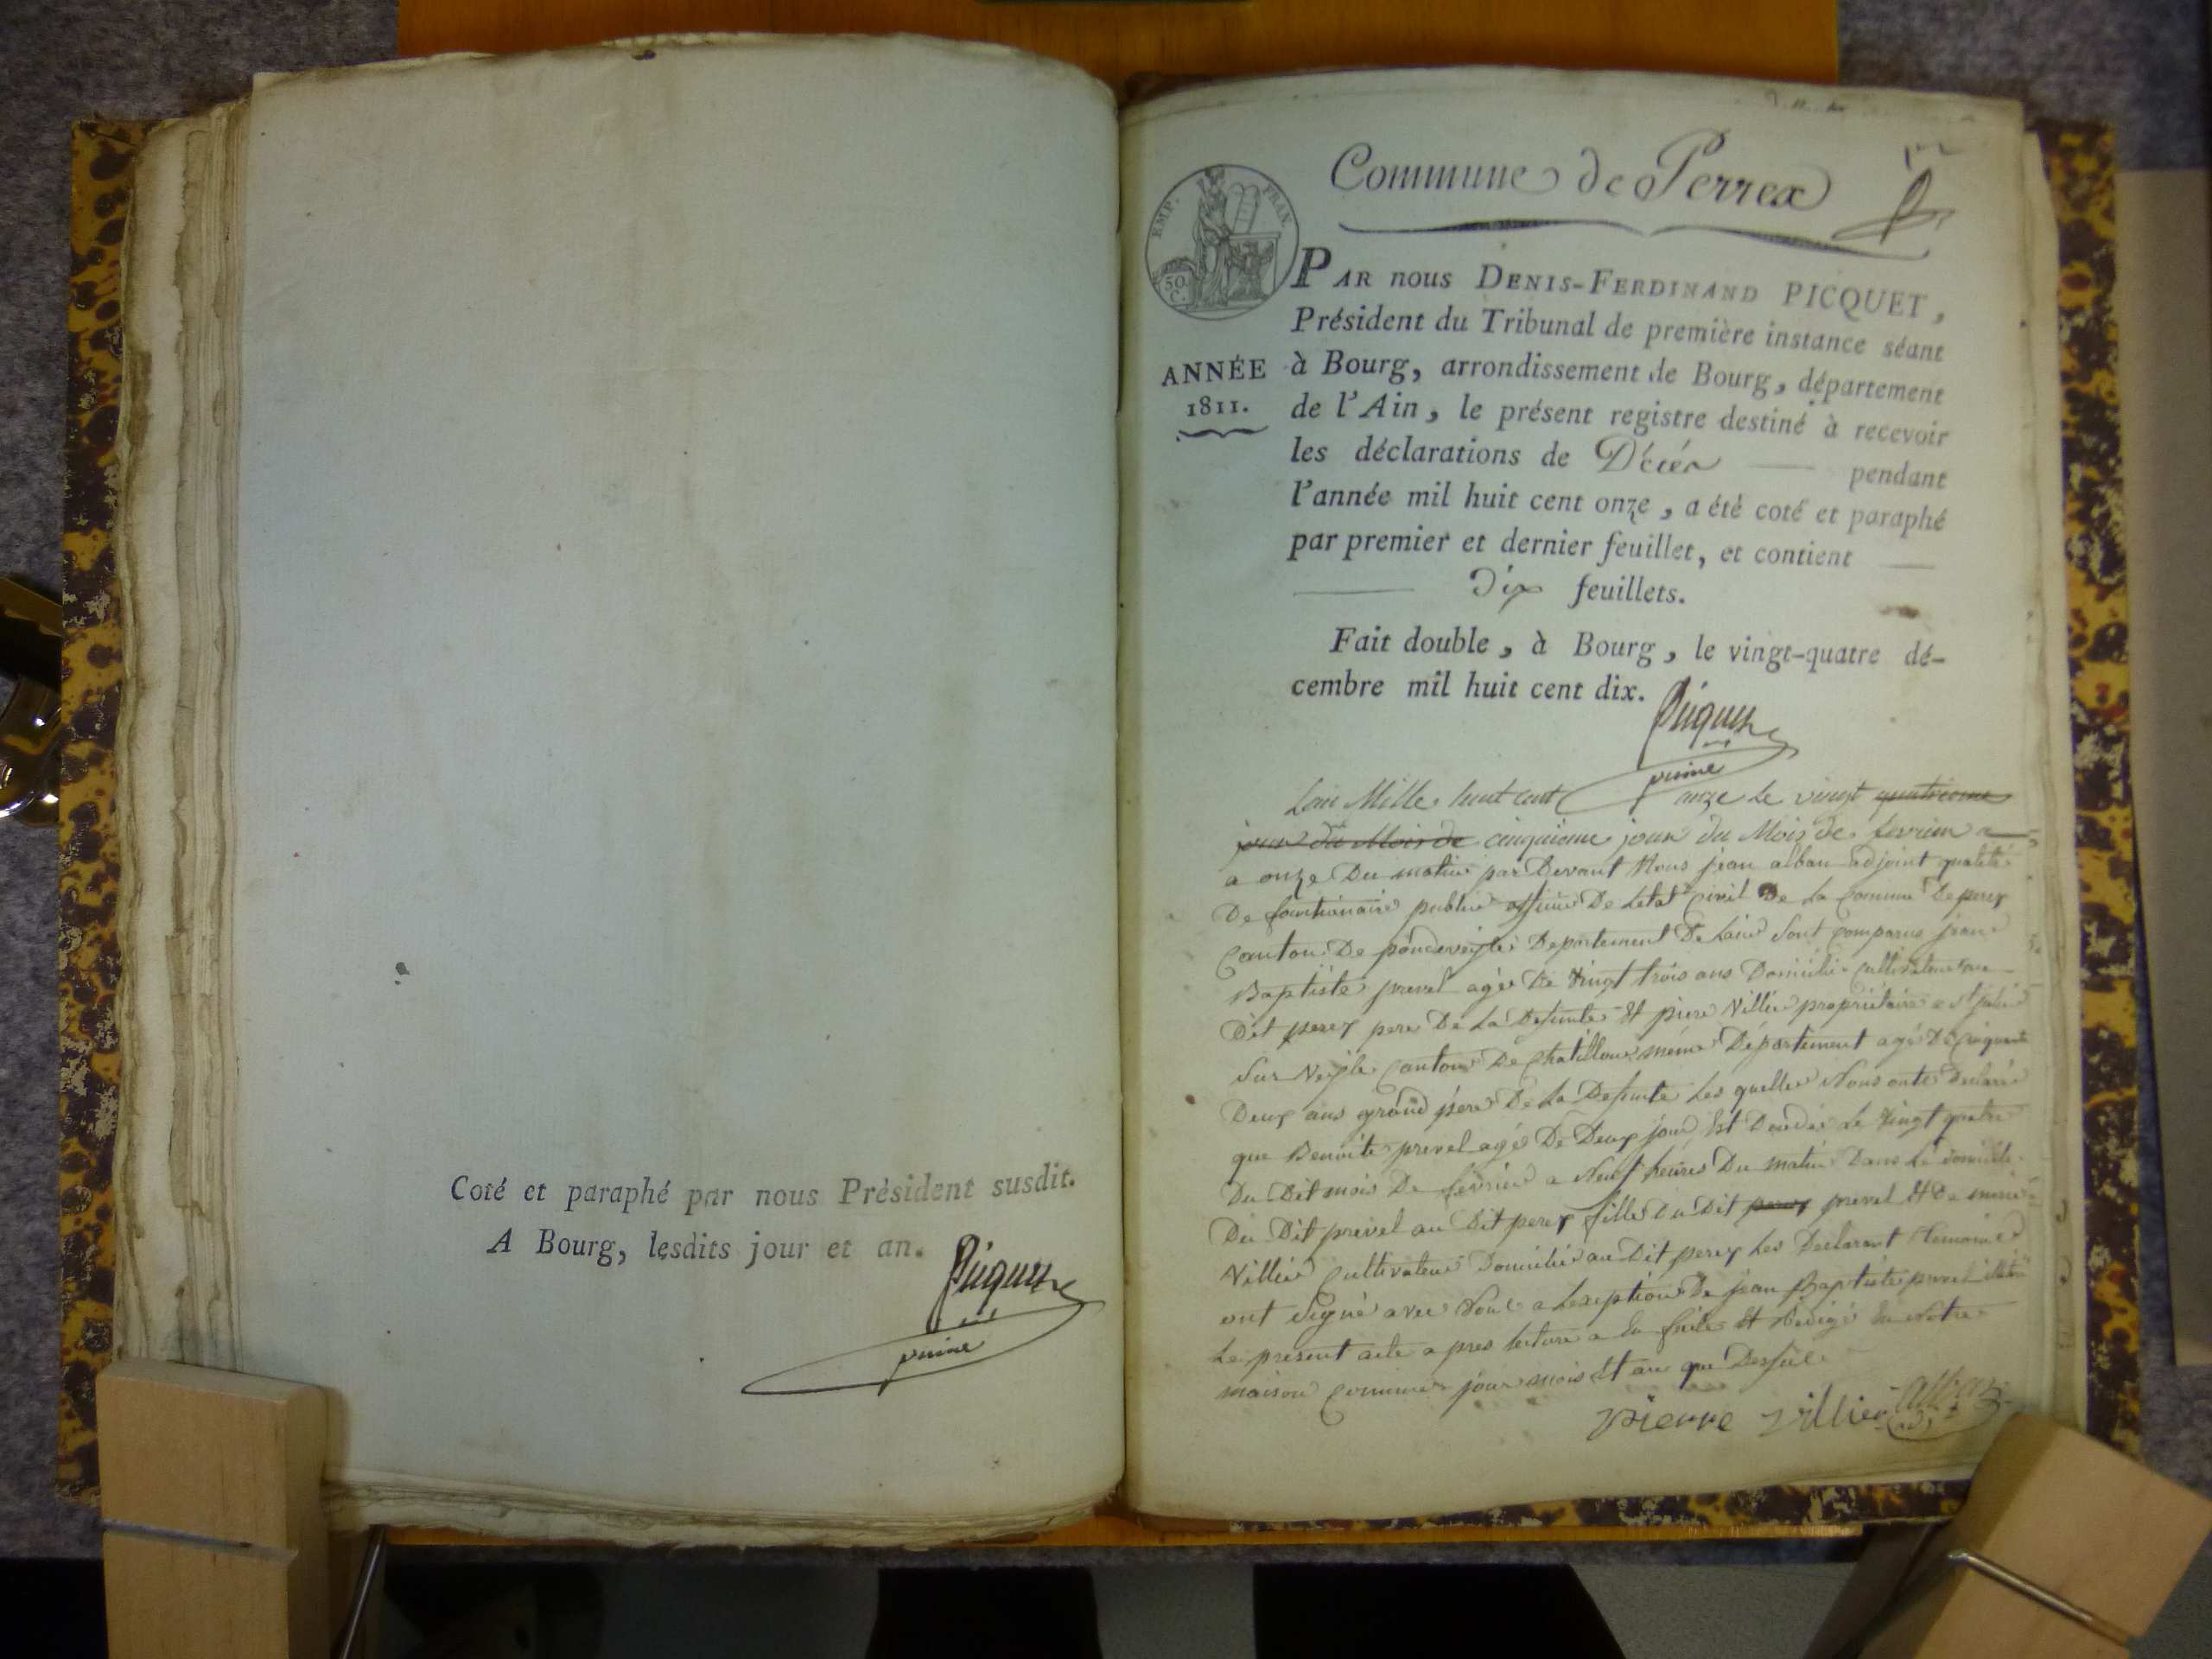 Coté et paraphé par nous Président susdit.
A Bourg, lesdits jour et an.
Picquet
Commune de Perrex
EMP. FRAN.
50 C.
ANNÉE
1811.
PAR nous DENIS-FERDINAND PICQUET,
Président du Tribunal de première instance séant
à Bourg, arrondissement de Bourg, département
de l'Ain, le présent registre destiné à recevoir
les déclarations de Décès pendant
l'année mil huit cent onze, a été coté et paraphé
par premier et dernier feuillet, et contient
Dix feuillets.
Fait double, à Bourg, le vingt-quatre dé-
cembre mil huit cent dix.
Picquet
Lan Mille huit cent onze Le vingt quatrieme
jour du Mois de cinquieme jour du Mois de fevrier a
a onze Du matin par Devant Nous jean alban adjoint qualité
De fonctionaire public officier De Letat Civil De La Commune De perex
Canton De pondeveyle Departement De Lain Sont Comparus jean
Baptiste prevel agé De vingt trois ans Domicilié Cultivateur au
Dit perex pere De La Defunte Et piere Villier propriétaire a St julien
Sur Veyle Canton De Chatillon méme Département agé De Cinquante
Deux ans grand pere De La Defunte Les quelles Nous onts Declaré
que Benoite prevel agé De Deux jour Est Decedée Le vingt quatre
Du Dit mois De fevrier a Neuf heures Du matin Dans Le domicile
Du Dit prevel au Dit perex fille Du Dit perex prevel Et De marie
Villier Cultivateur Domicilié au Dit perex Les Declarant temoins
ont Signé avec Nous a Lexeption De jean Baptiste prevel illétré
Le présent acte apres lecture a lui faite Et Redigé En Notre
maison Commune jour mois Et an que Dessus
pierre villier alban
adjt